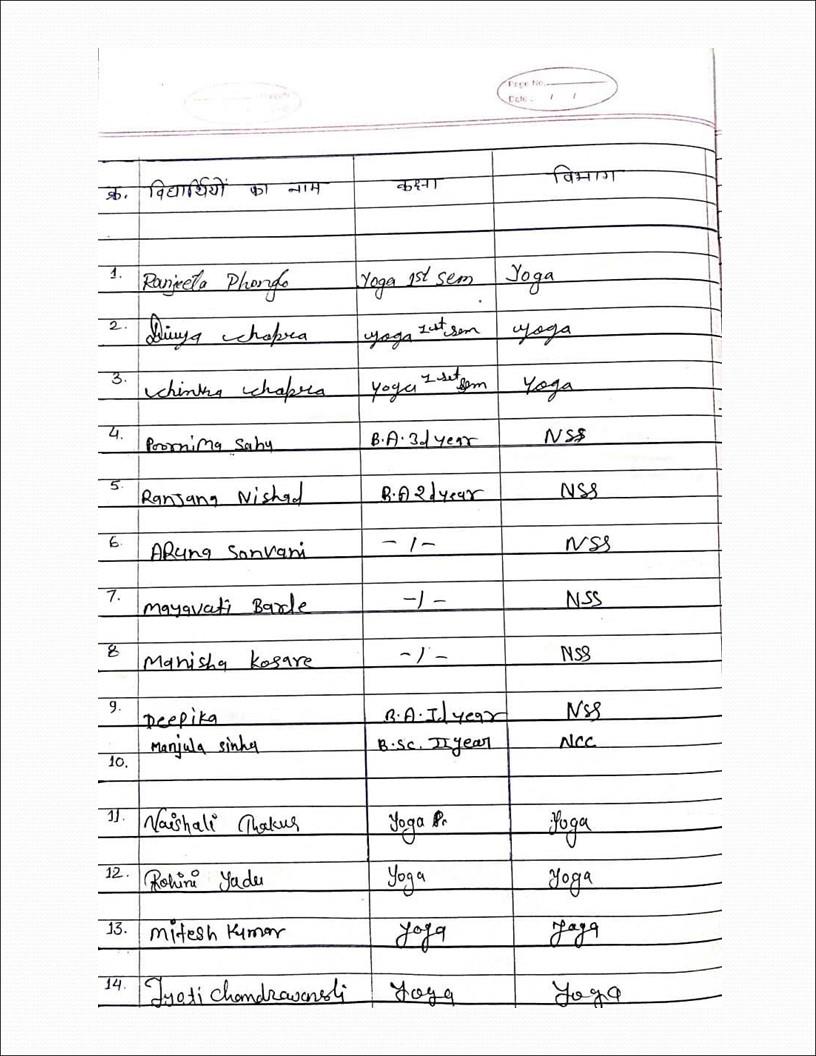 Page No.
Date : / /
क्र. विद्यार्थियों का नाम कक्षा विभाग
1. Ranjeeta Dhongo Yoga 1st sem Yoga
2. Divya Chopra yoga 1st sem yoga
3. Chintra Chopra yoga 1 set sem Yoga
4. Poornima Sahu B.A. 3d year NSS
5. Ranjana Nishad B.A 2d year NSS
6. ARuna Sonvani -/- NSS
7. Mayavati Barle -/- NSS
8 Manisha Kosare -/- NSS
9. Deepika B.A. Id year NSS
10. Manjula Sinha B.Sc. II year NCC
11. Vaishali Thakur Yoga Yoga
12. Rohini Yadu Yoga Yoga
13. Mitesh Kumar Yoga Yoga
14. Jyoti Chandrawansli Yoga Yoga